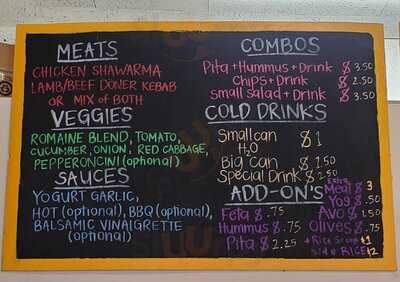 MEATS
CHICKEN SHAWARMA
LAMB/BEEF DONER KEBAB
OR MIX of BOTH
VEGGIES
ROMAINE BLEND, TOMATO,
CUCUMBER, ONION, RED CABBAGE,
PEPPERONCINI (optional)
SAUCES
YOGURT GARLIC,
HOT (optional), BBQ (optional),
BALSAMIC VINAIGRETTE
(optional)
COMBOS
Pita + Hummus + Drink $ 3.50
Chips + Drink $ 2.50
Small salad + Drink $ 3.50
COLD DRINKS
Small can $ 1
H2O
Big Can $ 1.50
Special Drink $ 2.50
ADD-ON'S
Feta $ .75
Hummus $ .75
Pita $ 2.25
Extra
Meat $ 3
Yog $ .50
Avo $ 1.50
Olives $ .75
+ Rice Scoop $1
Side RICE $2